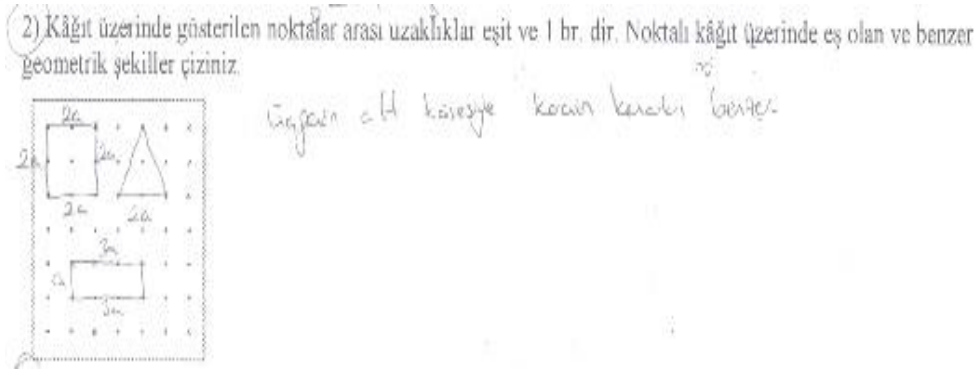 2) Kâğıt üzerinde gösterilen noktalar arası uzaklıklar eşit ve 1 br. dir. Noktalı kâğıt üzerinde eş olan ve benzer
geometrik şekiller çiziniz.
Üçgenin alt karesiyle benzer
2a
2a 2a
2a 2a
3a
a
3a